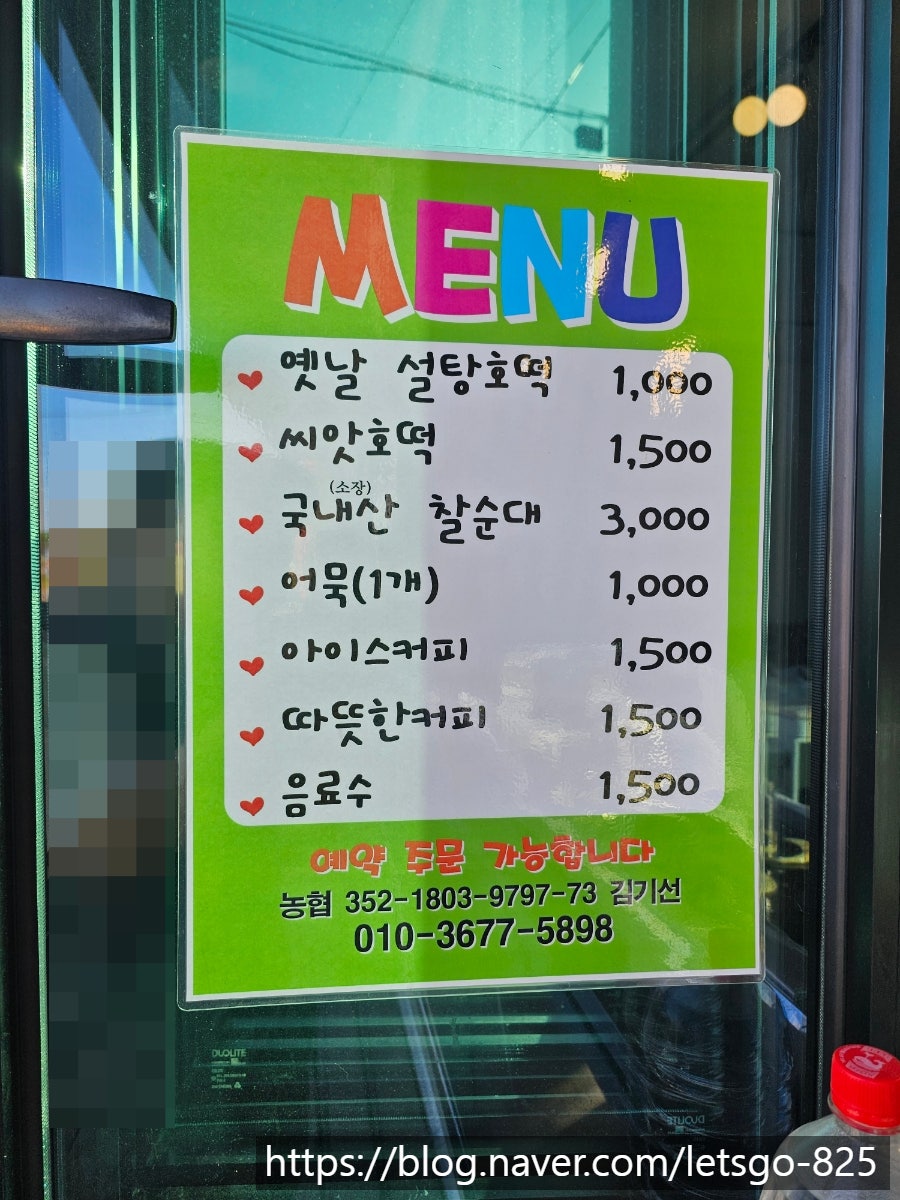 MENU
옛날 설탕호떡 1,000
씨앗호떡 1,500
(소장)
국내산 찰순대 3,000
어묵(1개) 1,000
아이스커피 1,500
따뜻한커피 1,500
음료수 1,500
예약 주문 가능합니다
농협 352-1803-9797-73 김기선
010-3677-5898
DUOLITE
DUOLITE
https://blog.naver.com/letsgo-825